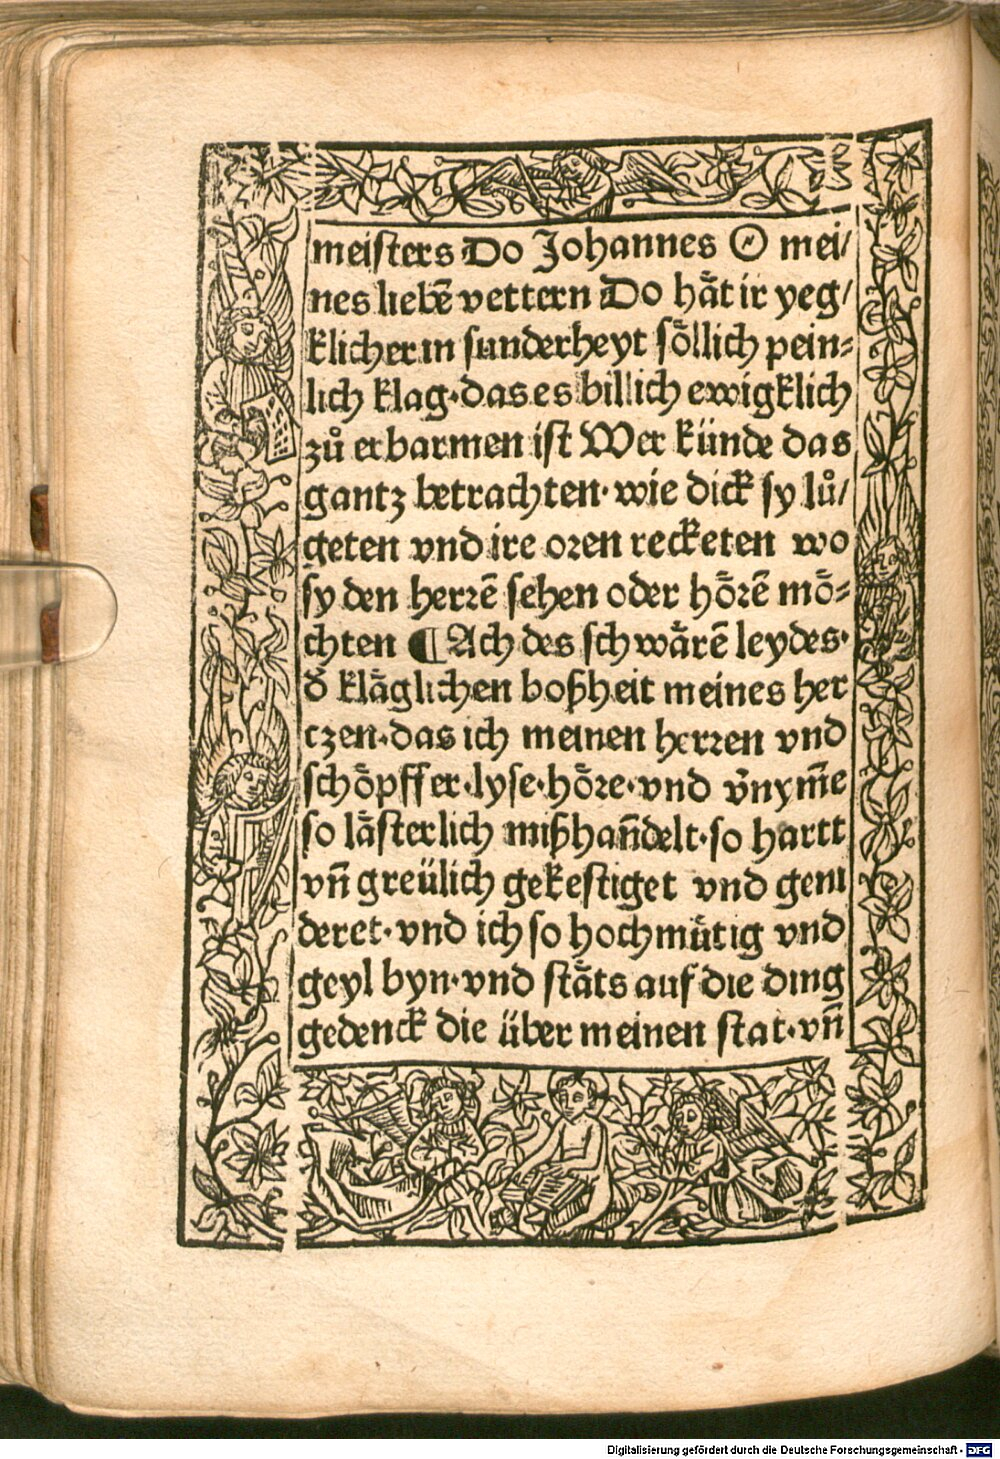 meiſters Do Johannes O mei/
nes liebē vettern Do haͤt ir yeg/
klicher in ſunderheyt ſoͤllich pein⸗
lich klag·das es billich ewigklich
zuͦ erbarmen iſt Wer künde das
gantz betrachten·wie dick ſy luͦ/
geten vnd ire oꝛen recketen wo
ſy den herꝛē ſehen oder hoͤꝛē moͤ⸗
chten ¶ Ach des ſchwaͤrē leydes·
d̄ klaͤglichen boßheit meines her
czen·das ich meinen herꝛen vnd
ſchoͤpffer·lyſe·hoͤꝛe·vnd v̄nym̄e
ſo laͤſterlich mißhan̄delt·ſo hartt
vn̄ greülich gekeſtiget vnd geni
deret·vnd ich ſo hochmuͤtig vnd
geyl byn·vnd ſtaͤts auf die ding
gedenck die über meinen ſtat·vn̄
Digitalisierung gefördert durch die Deutsche Forschungsgemeinschaft - DFG